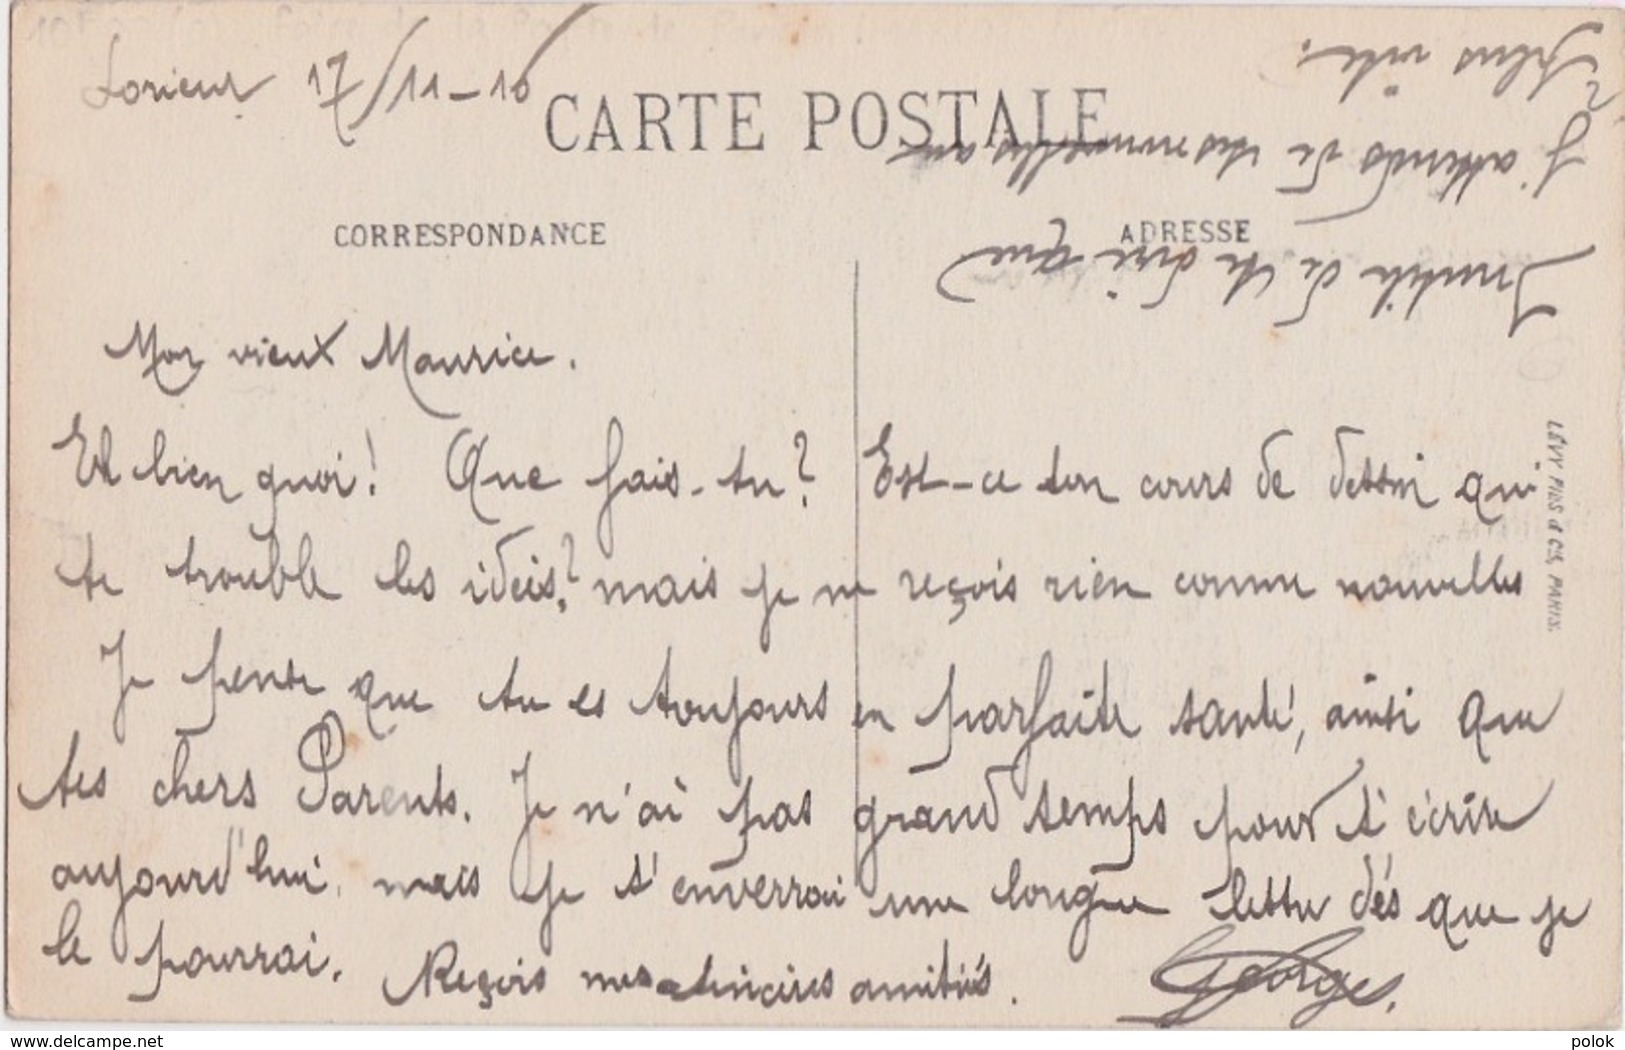 Lorieux 17/11-10
CARTE POSTALE
CORRESPONDANCE
ADRESSE
Mon vieux Maurice.
Et bien quoi! Que fais-tu? Est-ce ton cours de dessin qui
te trouble les idées? mais je ne reçois rien comme nouvelles
Je pense que tu es toujours en parfaite santé, ainsi que
tes chers Parents. Je n'ai pas grand temps pour t'écrire
aujourd'hui, mais je t'enverrai une longue lettre dès que je
le pourrai. Reçois mes sincères amitiés. Georges.
Inutile de te dire que
j'attends de tes nouvelles au
plus vite.
LÉVY FILS & Cie, PARIS.
www.delcampe.net
polok